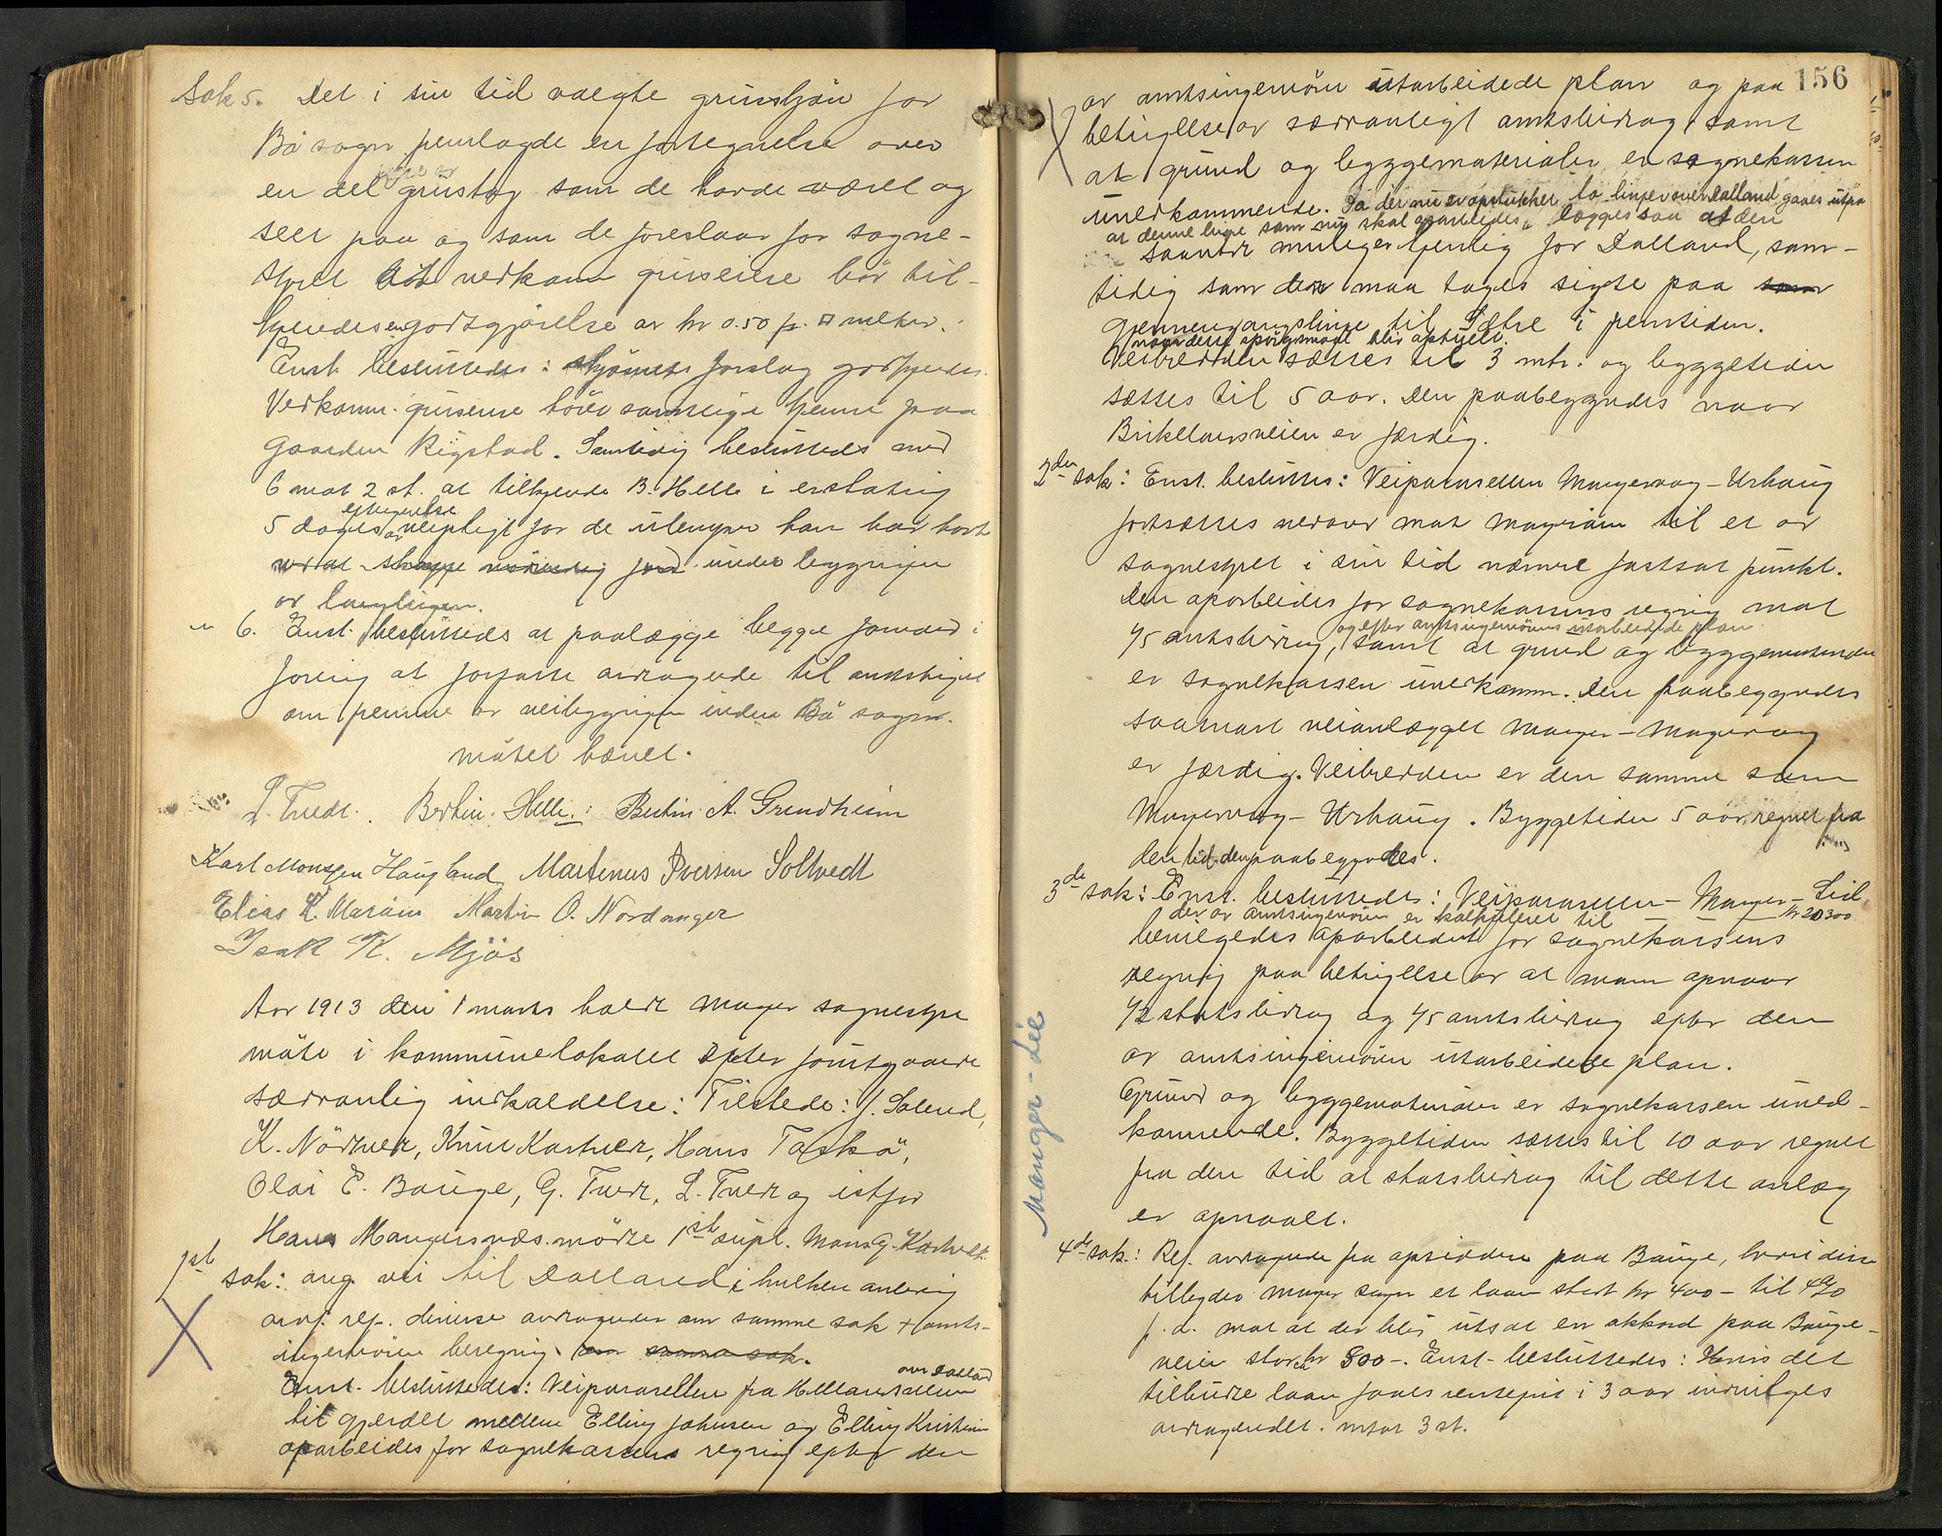 Sak 5. Det i sin tid valgte grusskjön for
Bö sogn fremlagde en fortegnelse over
en del grustag som de havde været og
seet paa og som de foreslaar for sogne-
styret at vedkom gruseiere bör til-
kjendes en godtgjörelse av kr 0.50 pr. □ meter.
Enst. besluttedes: skjönnets forslag godkjendes.
Vedkomm. gruseiere hörer samtlige hjemme paa
gaarden Rigstad. Samtidig besluttedes med
6 mot 2 st. at tilkjende B. Helle i erstatnig
5 dages eftergivelse av veipligt for de ulemper han har havt
ved at skaffe nödvendig jord under bygningen
av
" 6. Enst. besluttedes at paalægge begge formænd i
forenig at forfatte andragende til amtstinget
om fremme av veibygningen inden Bö sogn.
mötet hævet.
L. Tvedt. Bertin. Helle: Bertin A. Grindheim
Karl Monssen Haugland Martinus Iversen Soltvedt
Elias K. Maröm Martin O. Nordanger
Isak K. Mjös
Aar 1913 den 1 marts holdt Manger sognestyre
möte i kommunelokalet efter forutgaaende
sædvanlig indkaldelse: Tilstede: J. Solend,
K. Nördtveit, Knut Kartveit, Hans Toskö,
Olai E. Bauge, G. Tvedt, L. Tvedt og istfor
Hans Mangersnæs mödte 1st supl. Mons G. Kartveit.
1st sak: ang. vei til Dalland i hvilken anledning
ordf. ref. diverse andragender om samme sak + amts-
ingeniörens beregnig om samme sak.
Enst. besluttedes: Veiparsellen fra Hellandsdalen om Dalland
til gjerdet mellem Elling Johnsen og Elling Kristian
oparbeides for sognekassens regnig efter den
156
av amtsingeniören utarbeidede plan og paa
betingelse av sædvanligt amtsbidrag samt
at grund og byggematerialer er sognekassen
uvedkommende. Da der nu er opstukket to linjer over Dalland gaaes utfra
at denne linje som nu skal oparbeides, lægges saa at den
saavidt muligt tjenlig for Dalland, sam-
tidig som der maa tages sigte paa som
gjennemgangslinje til Sætre i fremtiden.
naar dette spörgsmaal blir aktuelt.
Veibredden sættes til 3 mtr. og byggetiden
sættes til 5 aar. Den paabegyndes naar
Birkelandsveien er færdig.
2den sak: Enst. besluttes: Veiparsellen Mangervaag - Urhaug
fortsættes nedover mot Maröm til et av
sognestyret i sin tid nærmere fastsat punkt.
Den oparbeides for sognekassens regnig mot
1/5 amtsbidrag, og efter amtsingeniörens utarbeidede plan samt at grund og byggematerialer
er sognekassen uvedkomm. Den paabegyndes
saasnart veianlægget Manger - Mangervaag
er færdig. Veibredden er den samme som
Mangervaag - Urhaug. Byggetiden 5 aar, regnet fra
den tid den paabegyndes.
3de sak: Enst. besluttedes: Veiparsellen Manger - Lid,
der av amtsingeniören er kalkuleret til kr 20300
bevilgedes oparbeidet for sognekassens
regnig paa betingelse av at man opnaar
1/2 statsbidrag og 1/5 amtsbidrag efter den
av amtsingeniören utarbeidede plan.
Grund og byggematerialer er sognekassen uved-
kommende. Byggetiden sættes til 10 aar regnet
fra den tid at statsbidrag til dette anlæg
er opnaadt.
Manger - Lie
4de sak: Ref. andragende fra opsidderne paa Bauge, hvori disse
tilbyder Manger sogn et laan stort kr 400 - til 4 %
p. a. mot at der blir utsat en akkord paa Bauge-
veien stor kr 800 -. Enst. besluttedes: Hvis det
tilbudte laan faaes rentefrit i 3 aar indvilges
andragendet. mtot 3 st.